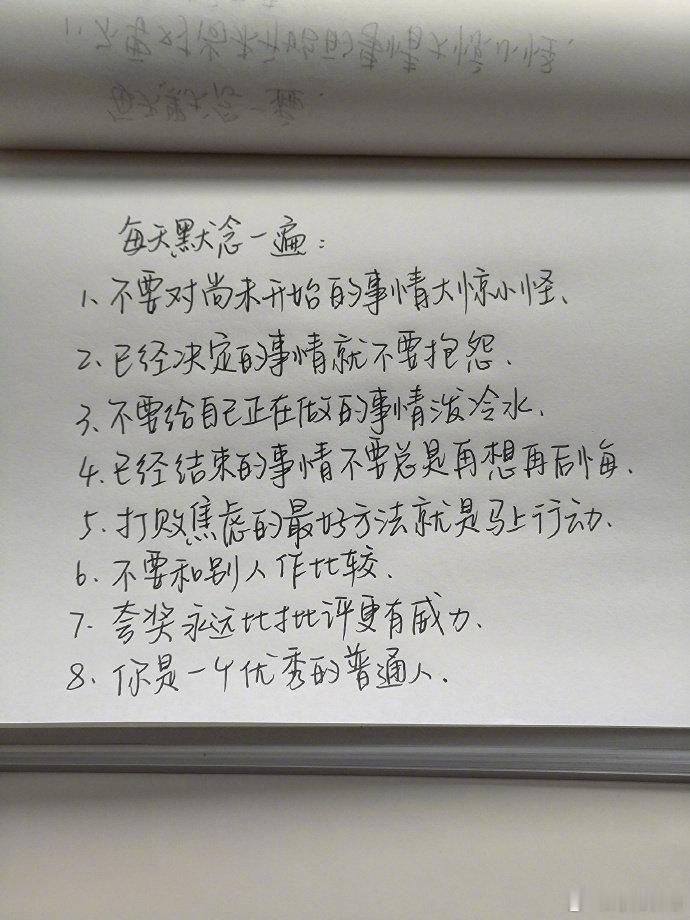 每天默念一遍：
1、不要对尚未开始的事情大惊小怪、
2、已经决定的事情就不要抱怨.
3、不要给自己正在做的事情泼冷水.
4、已经结束的事情不要总是再想再后悔.
5、打败焦虑的最好方法就是马上行动.
6、不要和别人作比较.
7、夸奖永远比批评更有威力.
8、你是一个优秀的普通人.